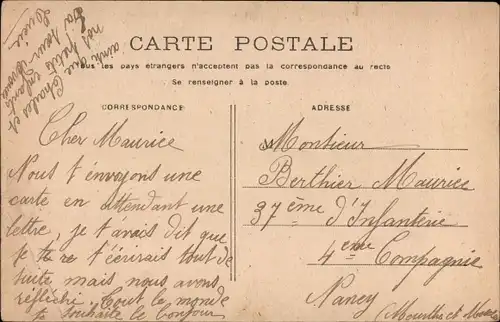 CARTE POSTALE
Tous les pays étrangers n'acceptent pas la correspondance au recto
Se renseigner à la poste.
CORRESPONDANCE
Cher Maurice
Nous t'envoyons une
carte en attendant une
lettre, je t'avais dit que
je te re t'écrirais tout de
suite mais nous avons
réfléchi. Tout le monde
te souhaite le bonjour
ainsi que
Charles et
ADRESSE
Monsieur
Berthier Maurice
37ème d'Infanterie
4eme Compagnie
Nancy
Meurthe et